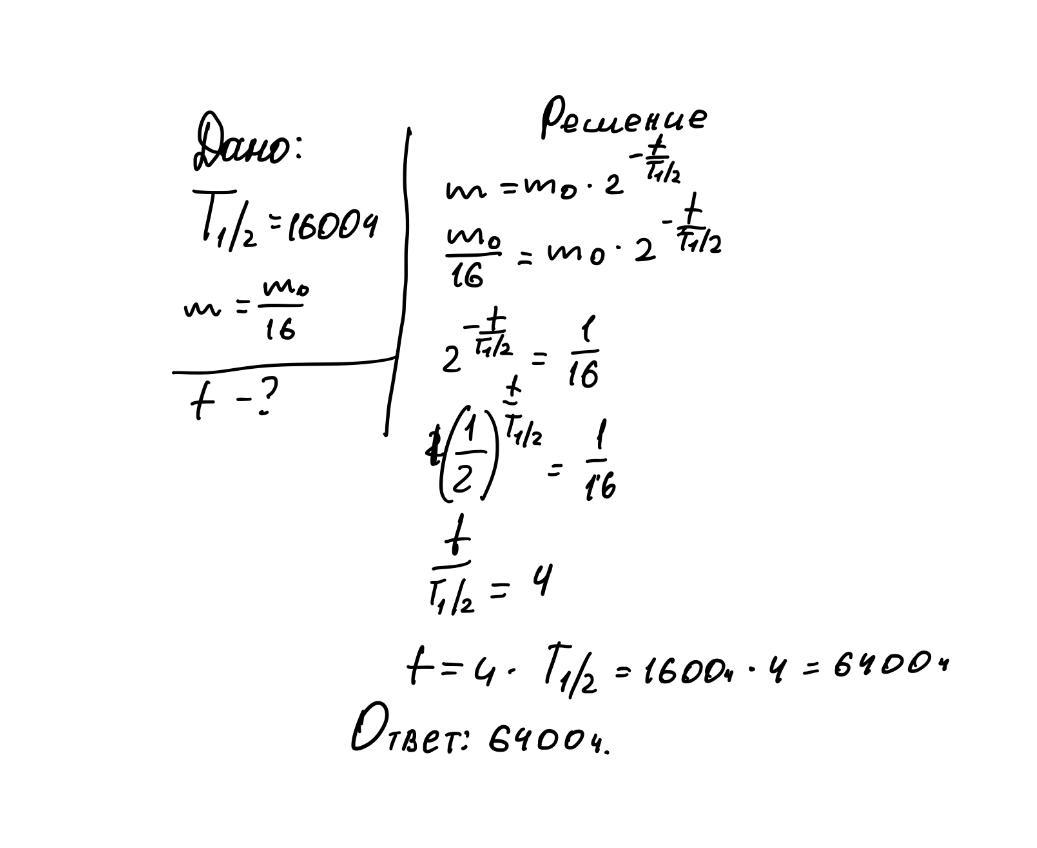 Дано:
T1/2 = 1600ч
m = m0/16
t - ?
Решение
m = m0 · 2^(-t/T1/2)
m0/16 = m0 · 2^(-t/T1/2)
2^(-t/T1/2) = 1/16
(1/2)^(t/T1/2) = 1/16
t/T1/2 = 4
t = 4 · T1/2 = 1600ч · 4 = 6400ч
Ответ: 6400ч.